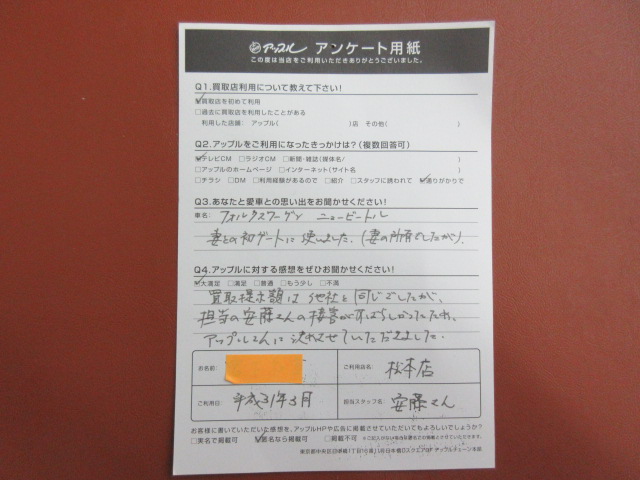 アップル アンケート用紙
この度は当店をご利用いただきありがとうございました。
Q1.買取店利用について教えて下さい!
☑買取店を初めて利用
□過去に買取店を利用したことがある
利用した店舗: アップル( )店 その他( )
Q2.アップルをご利用になったきっかけは?(複数回答可)
☑テレビCM □ラジオCM □新聞・雑誌(媒体名/ )
□アップルのホームページ □インターネット(サイト名 )
□チラシ □DM □利用経験があるので □紹介 □スタッフに誘われて ☑通りがかりで
Q3.あなたと愛車との思い出をお聞かせください!
車名: フォルクスワーゲン ニュービートル
妻との初デートに使いました。(妻の所有でしたが)。
Q4.アップルに対する感想をぜひお聞かせください!
☑大満足 □満足 □普通 □もう少し □不満
買取提示額は他社と同じでしたが、
担当の安藤さんの接客がすばらしかったため、
アップルさんに決めさせていただきました。
お名前:
ご利用店名: 松本店
ご利用日: 平成31年3月
担当スタッフ名: 安藤さん
お客様に書いていただいた感想を、アップルHPや広告に掲載させていただいてもよろしいでしょうか?
□実名で掲載可 ☑匿名なら掲載可 □掲載不可